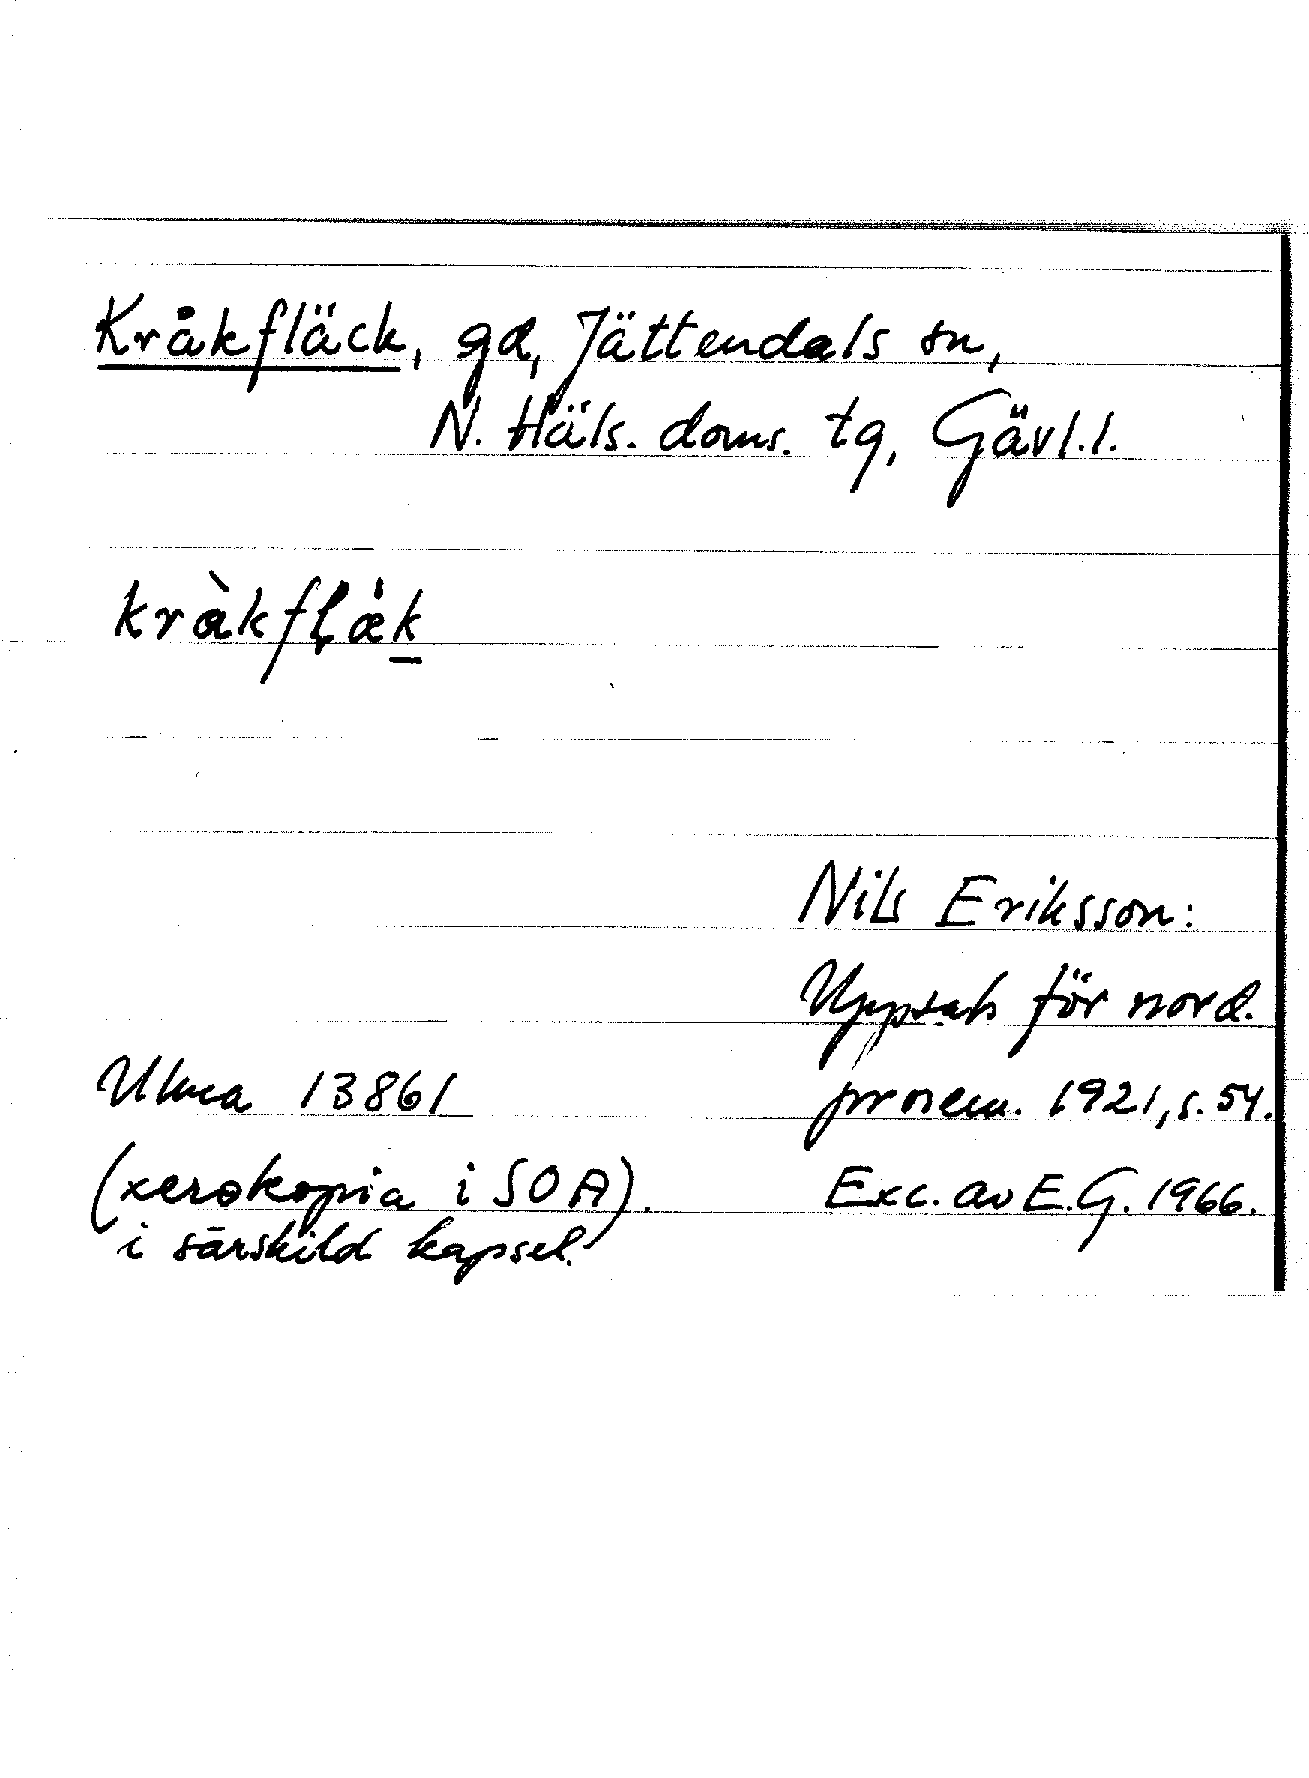 Kråkfläck, gd, Jättendals sn,
N. Häls. doms. tg, Gävl.l.
kràkfļæ̀k
Nils Eriksson:
Uppsats för nord.
prosem. 1921, s. 54.
Ulma 13861
(xerokopia i SOA).
i särskild kapsel.
Exc. av E.G. 1966.